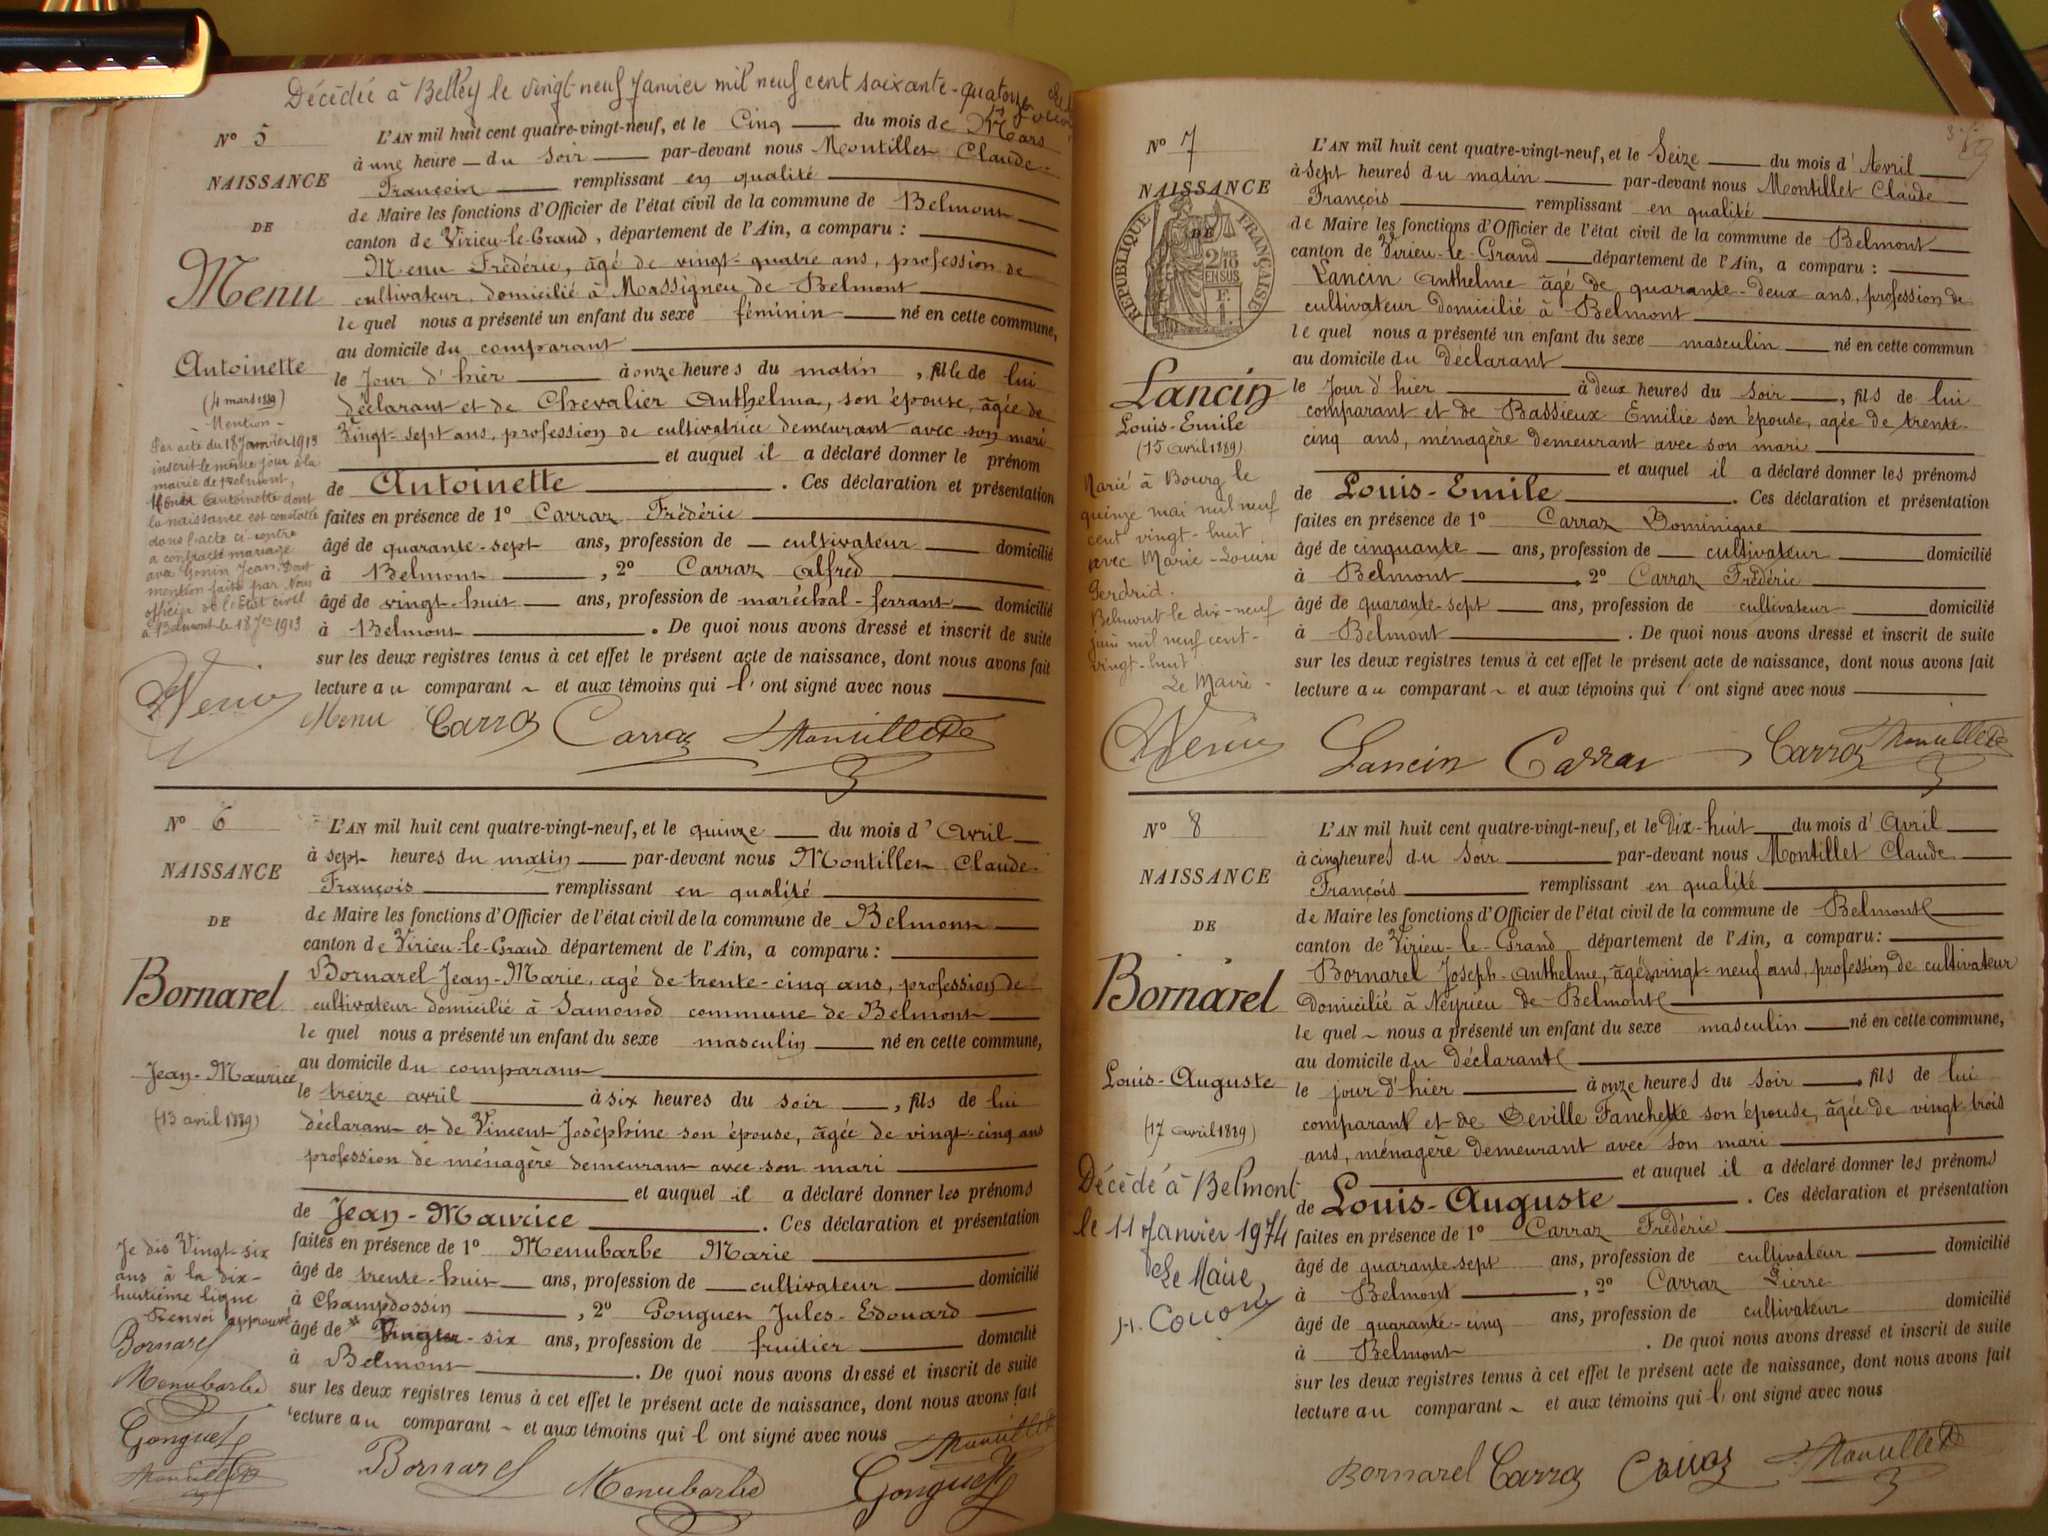 Décédée à Belley le vingt-neuf Janvier mil neuf cent soixante-quatorze
N° 5
NAISSANCE
DE
Menu
Antoinette
(4 mars 1889)
- Mention -
Par acte du 18 Janvier 1913
inscrit le même jour à la
mairie de Belmont,
Menu Antoinette dont
la naissance est constatée
dans l'acte ci-contre
a contracté mariage
avec Gonin Jean. Dont
mention faite par Nous
officier de l'Etat civil
à Belmont le 18 Jer 1913
L'AN mil huit cent quatre-vingt-neuf, et le Cinq du mois de Mars
à une heure du soir par-devant nous Montillet Claude-
François remplissant en qualité
de Maire les fonctions d'Officier de l'état civil de la commune de Belmont
canton de Virieu-le-Grand, département de l'Ain, a comparu :
Menu Frédéric, âgé de vingt-quatre ans, profession de
cultivateur, domicilié à Massignieu de Belmont
le quel nous a présenté un enfant du sexe féminin né en cette commune,
au domicile du comparant
le Jour d'hier à onze heures du matin, fille de lui
déclarant et de Chevalier Anthelma, son épouse, âgée de
Vingt-sept ans, profession de cultivatrice demeurant avec son mari
et auquel il a déclaré donner le prénom
de Antoinette. Ces déclaration et présentation
faites en présence de 1° Carraz Frédéric
âgé de quarante-sept ans, profession de cultivateur domicilié
à Belmont, 2° Carraz Alfred
âgé de vingt-huit ans, profession de maréchal-ferrant domicilié
à Belmont. De quoi nous avons dressé et inscrit de suite
sur les deux registres tenus à cet effet le présent acte de naissance, dont nous avons fait
lecture au comparant et aux témoins qui l'ont signé avec nous
Menu Carraz Carraz Montillet
N° 6
NAISSANCE
DE
Bornarel
Jean-Maurice
(13 avril 1889)
Je dis Vingt-six
ans à la dix-
huitième ligne
Renvoi approuvé
Bornarel
Menubarbe
Gonguet
Montillet
L'AN mil huit cent quatre-vingt-neuf, et le quinze du mois d'Avril
à sept heures du matin par-devant nous Montillet Claude-
François remplissant en qualité
de Maire les fonctions d'Officier de l'état civil de la commune de Belmont
canton de Virieu-le-Grand département de l'Ain, a comparu :
Bornarel Jean-Marie, agé de trente-cinq ans, profession de
cultivateur domicilié à Samonod commune de Belmont
le quel nous a présenté un enfant du sexe masculin né en cette commune,
au domicile du comparant
le treize avril à six heures du soir, fils de lui
déclarant et de Vincent Joséphine son épouse, âgée de vingt-cinq ans
profession de ménagère demeurant avec son mari
et auquel il a déclaré donner les prénoms
de Jean-Maurice. Ces déclaration et présentation
faites en présence de 1° Menubarbe Marie
âgé de trente-huit ans, profession de cultivateur domicilié
à Champdossin, 2° Gonguet Jules-Edouard
âgé de -six ans, profession de fruitier domicilié
à Belmont. De quoi nous avons dressé et inscrit de suite
sur les deux registres tenus à cet effet le présent acte de naissance, dont nous avons fait
lecture au comparant et aux témoins qui l'ont signé avec nous
Bornarel Menubarbe Gonguet Montillet
N° 7
NAISSANCE
DE
RÉPUBLIQUE FRANÇAISE
Lancin
Louis-Emile
(15 avril 1889)
Marié à Bourg le
quinze mai mil neuf
cent vingt-huit
avec Marie-Louise
Belmont le dix-neuf
juin mil neuf cent-
vingt-huit
Le Maire
L'AN mil huit cent quatre-vingt-neuf, et le Seize du mois d'Avril
à sept heures du matin par-devant nous Montillet Claude
François remplissant en qualité
de Maire les fonctions d'Officier de l'état civil de la commune de Belmont
canton de Virieu-le-Grand département de l'Ain, a comparu :
Lancin Anthelme âgé de quarante-deux ans, profession de
cultivateur domicilié à Belmont
le quel nous a présenté un enfant du sexe masculin né en cette commun
au domicile du déclarant
le Jour d'hier à deux heures du soir, fils de lui
comparant et de Bassieux Emilie son épouse, agée de trente-
cinq ans, ménagère demeurant avec son mari
et auquel il a déclaré donner les prénoms
de Louis-Emile. Ces déclaration et présentation
faites en présence de 1° Carraz Dominique
âgé de cinquante ans, profession de cultivateur domicilié
à Belmont, 2° Carraz Frédéric
âgé de quarante-sept ans, profession de cultivateur domicilié
à Belmont. De quoi nous avons dressé et inscrit de suite
sur les deux registres tenus à cet effet le présent acte de naissance, dont nous avons fait
lecture au comparant et aux témoins qui l'ont signé avec nous
Lancin Carraz Carraz Montillet
N° 8
NAISSANCE
DE
Bornarel
Louis-Auguste
(17 avril 1889)
Décédé à Belmont
le 11 Janvier 1974
Le Maire,
L'AN mil huit cent quatre-vingt-neuf, et le Dix-huit du mois d'Avril
à cinq heures du soir par-devant nous Montillet Claude
François remplissant en qualité
de Maire les fonctions d'Officier de l'état civil de la commune de Belmont
canton de Virieu-le-Grand département de l'Ain, a comparu :
Bornarel Joseph-Anthelme, âgé de vingt-neuf ans, profession de cultivateur
Domicilié à Neyrieu de Belmont
le quel nous a présenté un enfant du sexe masculin né en cette commune,
au domicile du déclarant
le jour d'hier à onze heures du soir, fils de lui
comparant et de Deville Fanchette son épouse, âgée de vingt trois
ans, ménagère demeurant avec son mari
et auquel il a déclaré donner les prénoms
de Louis-Auguste. Ces déclaration et présentation
faites en présence de 1° Carraz Frédéric
âgé de quarante-sept ans, profession de cultivateur domicilié
à Belmont, 2° Carraz Pierre
âgé de quarante-cinq ans, profession de cultivateur domicilié
à Belmont. De quoi nous avons dressé et inscrit de suite
sur les deux registres tenus à cet effet le présent acte de naissance, dont nous avons fait
lecture au comparant et aux témoins qui l'ont signé avec nous
Bornarel Carraz Carraz Montillet